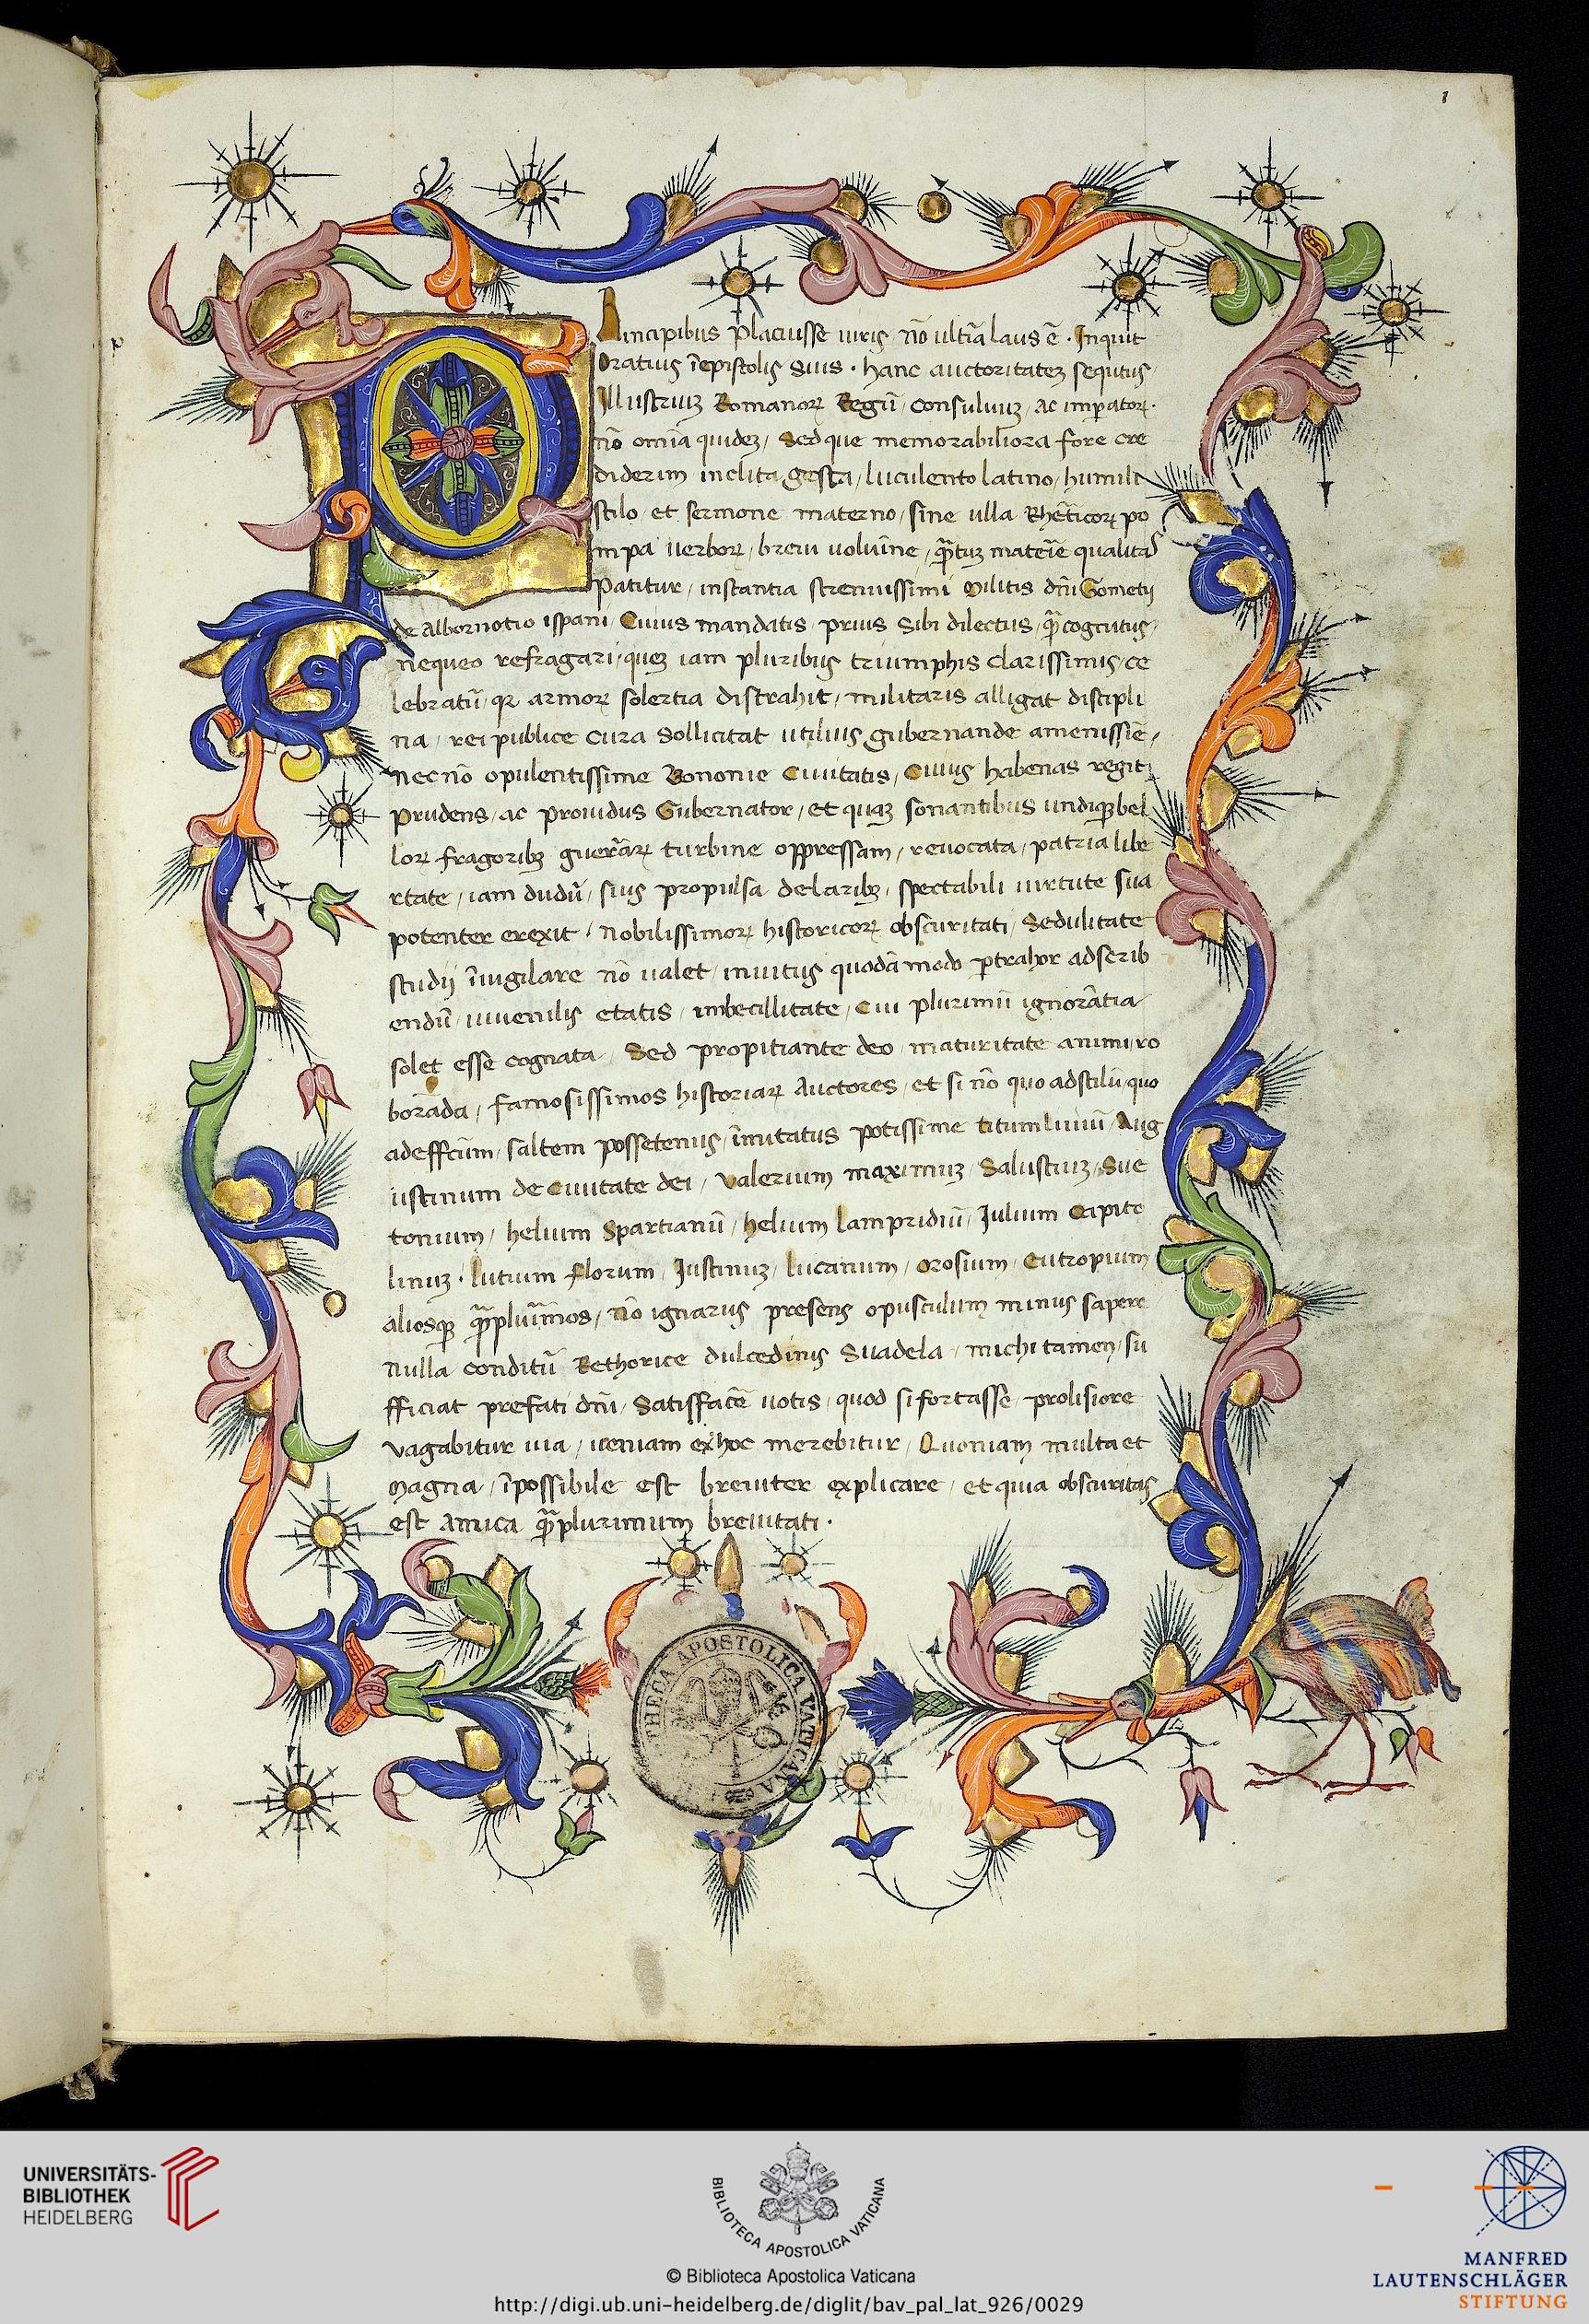 1
p
PRincipibus placuisse viris, nō ultīa laus ē. Inquit
Oratius ī epistolis suis. hanc auctoritateꝫ sequtus
Illustriuꝫ Romanoꝝ Regū, consuluuꝫ, ac imꝑatoꝝ.
nō omīa quideꝫ, sed que memorabiliora fore cre
diderim inclita gesta, luculento latino, humili
stilo et sermone materno, sine ulla Rhēticoꝝ po
mpa verboꝝ, brevi volumīne, qͣtuꝫ materīe qualitas
patitur, instantia strenuissimi militis dn̄i Gometij
de Albornotio ispani, Cuius mandatis prius sibi dilectus, qͣ cognitus,
nequeo refragari, queꝫ iam pluribus triumphis clarissimis ce
lebratū, qꝛ armoꝝ solertia distrahit, militaris alligat discipli
na, rei publice cura sollicitat utilius gubernande amenissīe,
nec nō opulentissime Bononie Civitatis, Cuius habenas regit
prudens, ac providus Gubernator, et quaꝫ sonantibus undiqꝫ bel
loꝝ fragoribꝫ guerraꝝ turbine oppressam, revocata, patria libe
rtate, iam dudū, suis propulsa de laribꝫ, spectabili virtute sua
potenter erexit, nobilissimoꝝ historicoꝝ obscuritati, sedulitate
studij īvigilare nō valet, invitus quodā modo ꝑtrahor ad scrib
endū, iuvenilis etatis, imbecillitate, Cui plurimū ignorātia
solet esse cognata, Sed propitiante deo, maturitate animi, ro
borāda, famosissimos historiaꝝ Auctores, et si nō quo ad stilū, quo
ad effectūm, saltem possetenus, īmitatus potissime titum liviū, Aug
ustinum de Civitate dei, valerium maximuꝫ, Salustiuꝫ, Sue
tonium, helium Spartianū, helium lampridiū, Julium Capito
linuꝫ. lutium florum, Justinuꝫ, lucanum, Orosium, Eutropium
aliosqꝫ qͣplurimos, nō ignarus presens opusculum minus sapere
nulla conditū Rethorice dulcedinis Suadela, michi tamen, su
fficiat prefati dn̄i, satisfacē votis, quod si fortasse, prolisiore
vagabitur via, veniam ex hoc merebitur, Quoniam multa et
magna, īpossibile est breviter explicare, et quia obscuritas
est amica qͣplurimum brevitati.
BIBLIOTHECA APOSTOLICA VATICANA
UNIVERSITÄTS-
BIBLIOTHEK
HEIDELBERG
BIBLIOTECA APOSTOLICA VATICANA
© Biblioteca Apostolica Vaticana
http://digi.ub.uni-heidelberg.de/diglit/bav_pal_lat_926/0029
MANFRED
LAUTENSCHLÄGER
STIFTUNG